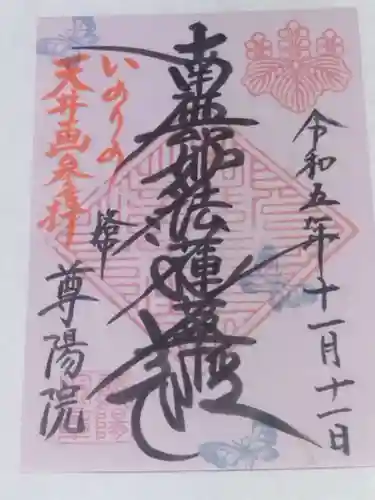 令和五年十一月十一日
南無妙法蓮華経
いのりの
天井画
尊陽院